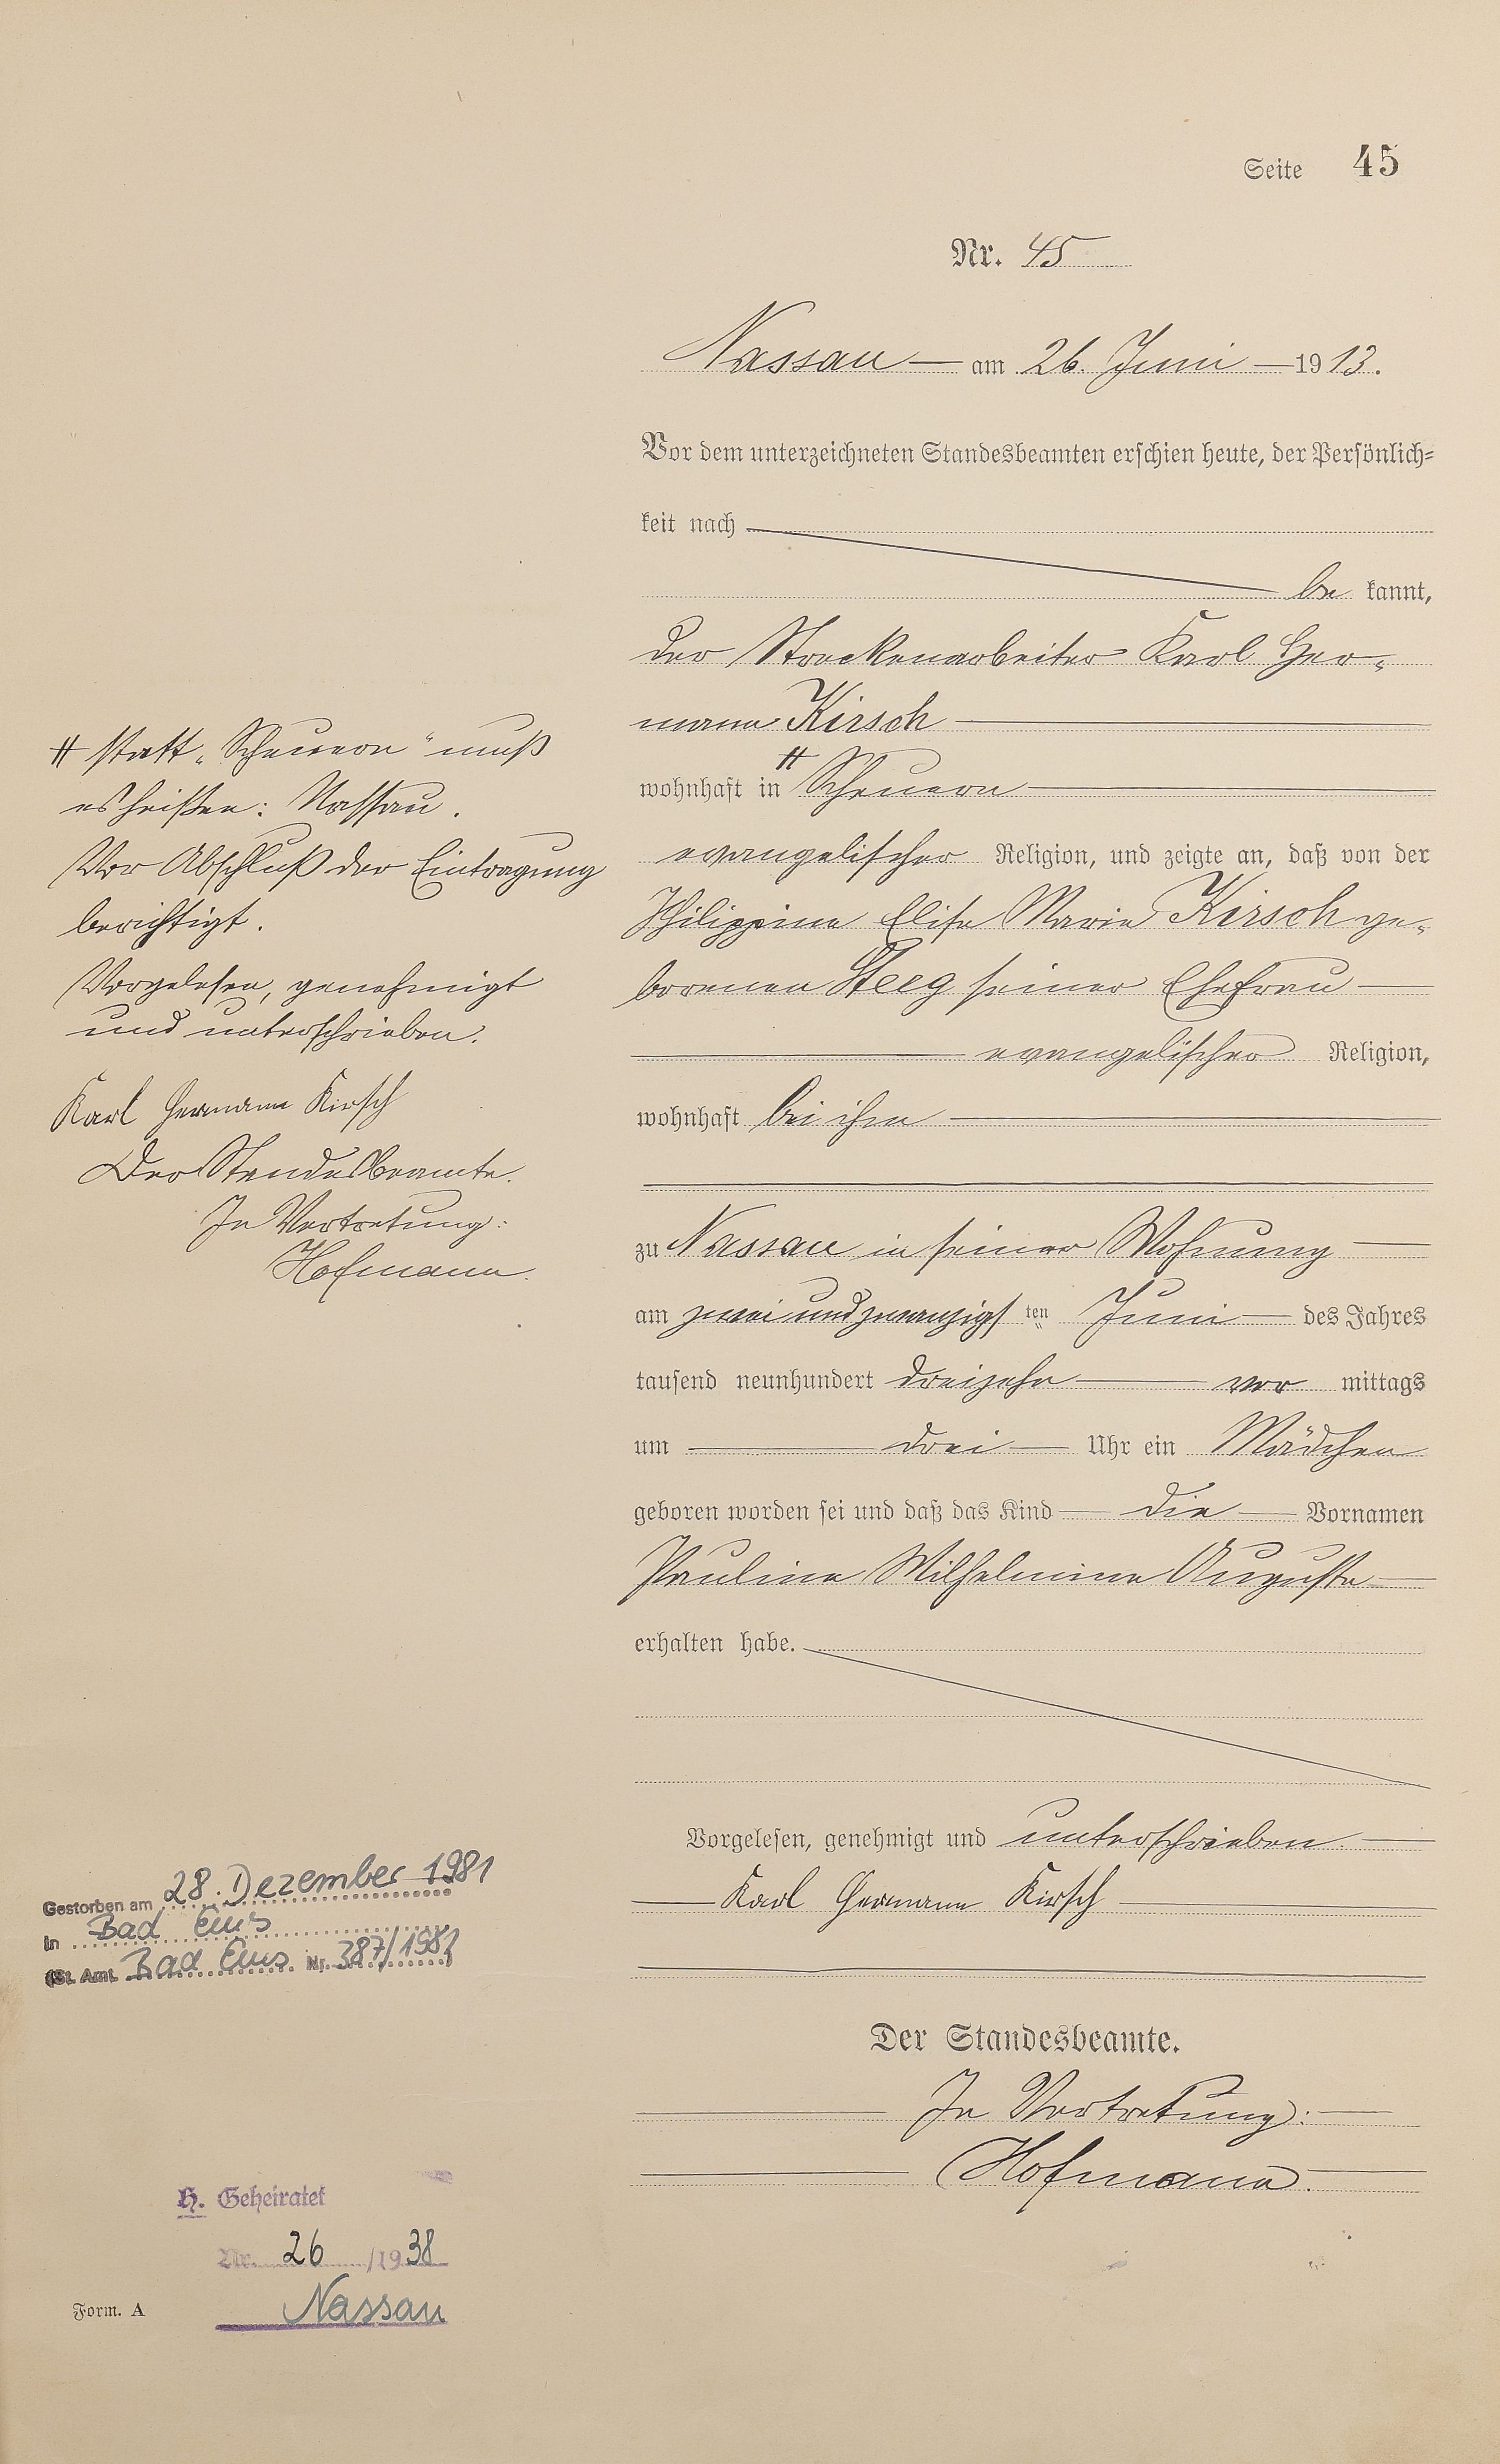 Seite 45
Nr. 45
Nassau am 26. Juni 1913.
Vor dem unterzeichneten Standesbeamten erschien heute, der Persönlich=
keit nach
be kannt,
der Streckenarbeiter Karl Her-
mann Kirsch
wohnhaft in # Scheuern
evangelischer Religion, und zeigte an, daß von der
Philippine Elise Marie Kirsch ge-
borenen Steeg seiner Ehefrau
evangelischer Religion,
wohnhaft bei ihm
zu Nassau in seiner Wohnung
am zwei und zwanzigsten Juni des Jahres
tausend neunhundert dreizehn vor mittags
um drei Uhr ein Mädchen
geboren worden sei und daß das Kind die Vornamen
Pauline Wilhelmine Auguste
erhalten habe.
Vorgelesen, genehmigt und unterschrieben.
Karl Hermann Kirsch
Der Standesbeamte.
In Vertretung:
Hofmann.
# statt „Scheuern“ muß
es heißen: Nassau.
Vor Abschluß der Eintragung
berichtigt.
Vorgelesen, genehmigt
und unterschrieben.
Karl Hermann Kirsch
Der Standesbeamte.
In Vertretung:
Hofmann.
Gestorben am 28. Dezember 1981
in Bad Ems
(St. Amt. Bad Ems Nr. 387/1981)
H. Geheiratet
Nr. 26 /1938
Nassau
Form. A